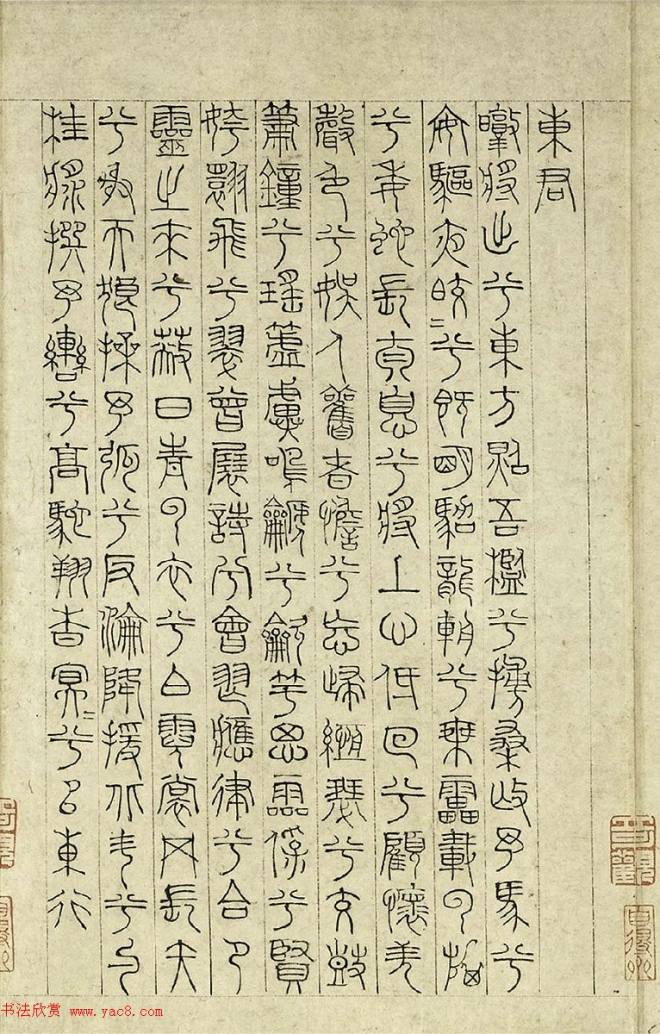 東君
暾將出兮東方照吾檻兮扶桑撫余馬兮
安驅夜晈〻兮既明駕龍輈兮乘雷載雲旗
兮委蛇長太息兮將上心低回兮顧懷羌
聲色兮娛人觀者憺兮忘歸緪瑟兮交鼓
簫鐘兮瑤簴鳴篪兮龡竽思靈保兮賢
姱翾飛兮翠曾展詩兮會舞應律兮合節
靈之來兮蔽日青雲衣兮白霓裳舉長矢
兮射天狼操余弧兮反淪降援北斗兮酌
桂漿撰余轡兮高駝翔杳冥〻兮以東行
书法欣赏 www.yac8.com